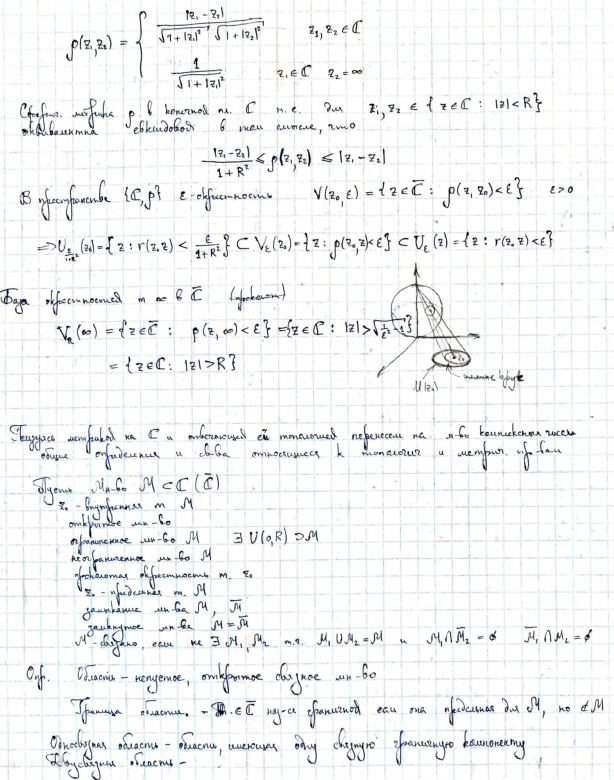 ρ(z₁,z₂) = { |z₁ - z₂| / (√(1+|z₁|²) √(1+|z₂|²))   z₁, z₂ ∈ ℂ
1 / √(1+|z₁|²)   z₁ ∈ ℂ   z₂ = ∞
Сферич. метрика ρ в конечной пл. ℂ т.е. для z₁, z₂ ∈ {z ∈ ℂ : |z| < R}
эквивалентна евклидовой в том смысле, что
|z₁ - z₂| / (1 + R²) ≤ ρ(z₁, z₂) ≤ |z₁ - z₂|
В пространстве {ℂ, ρ} ε-окрестность V(z₀, ε) = {z ∈ ℂ̅ : ρ(z, z₀) < ε}   ε > 0
⇒ U_{ε/(1+R²)}(z₀) = {z : r(z₀, z) < ε/(1+R²)} ⊂ V_ε(z₀) = {z : ρ(z₀, z) < ε} ⊂ U_ε(z) = {z : r(z₀ z) < ε}
База окрестностей т ∞ в ℂ̅ (проколот)
V_R(∞) = {z ∈ ℂ̅ : ρ(z, ∞) < ε} = {z ∈ ℂ : |z| > √(1/ε² - 1)}
= {z ∈ ℂ : |z| > R}
z₀
U(z₀)
Пользуясь метрикой на ℂ и отвечающей ей топологией перенесем на мн-во комплексных чисел
общие определения и св-ва относящиеся к топологич и метрич. пр-вам
Пусть Мн-во M ⊂ ℂ (ℂ̅)
z₀ - внутренняя т M
открытое мн-во
ограниченное мн-во M   ∃ U(0, R) ⊃ M
неограниченное мн-во M
проколотая окрестность т. z₀
z₀ - предельная т. M
замыкание мн-ва M, M̅
замкнутое мн-во M = M̅
M - связно, если не ∃ M₁, M₂ т.ч. M₁ ∪ M₂ = M и M₁ ∩ M̅₂ = ∅   M̅₁ ∩ M₂ = ∅
Опр. Область - непустое, открытое связное мн-во
Граница области. - ∈ ℂ̅ наз-ся граничной если она предельная для M, но ∉ M
Односвязная область - область, имеющая одну связную граничную компоненту
Двусвязная область -